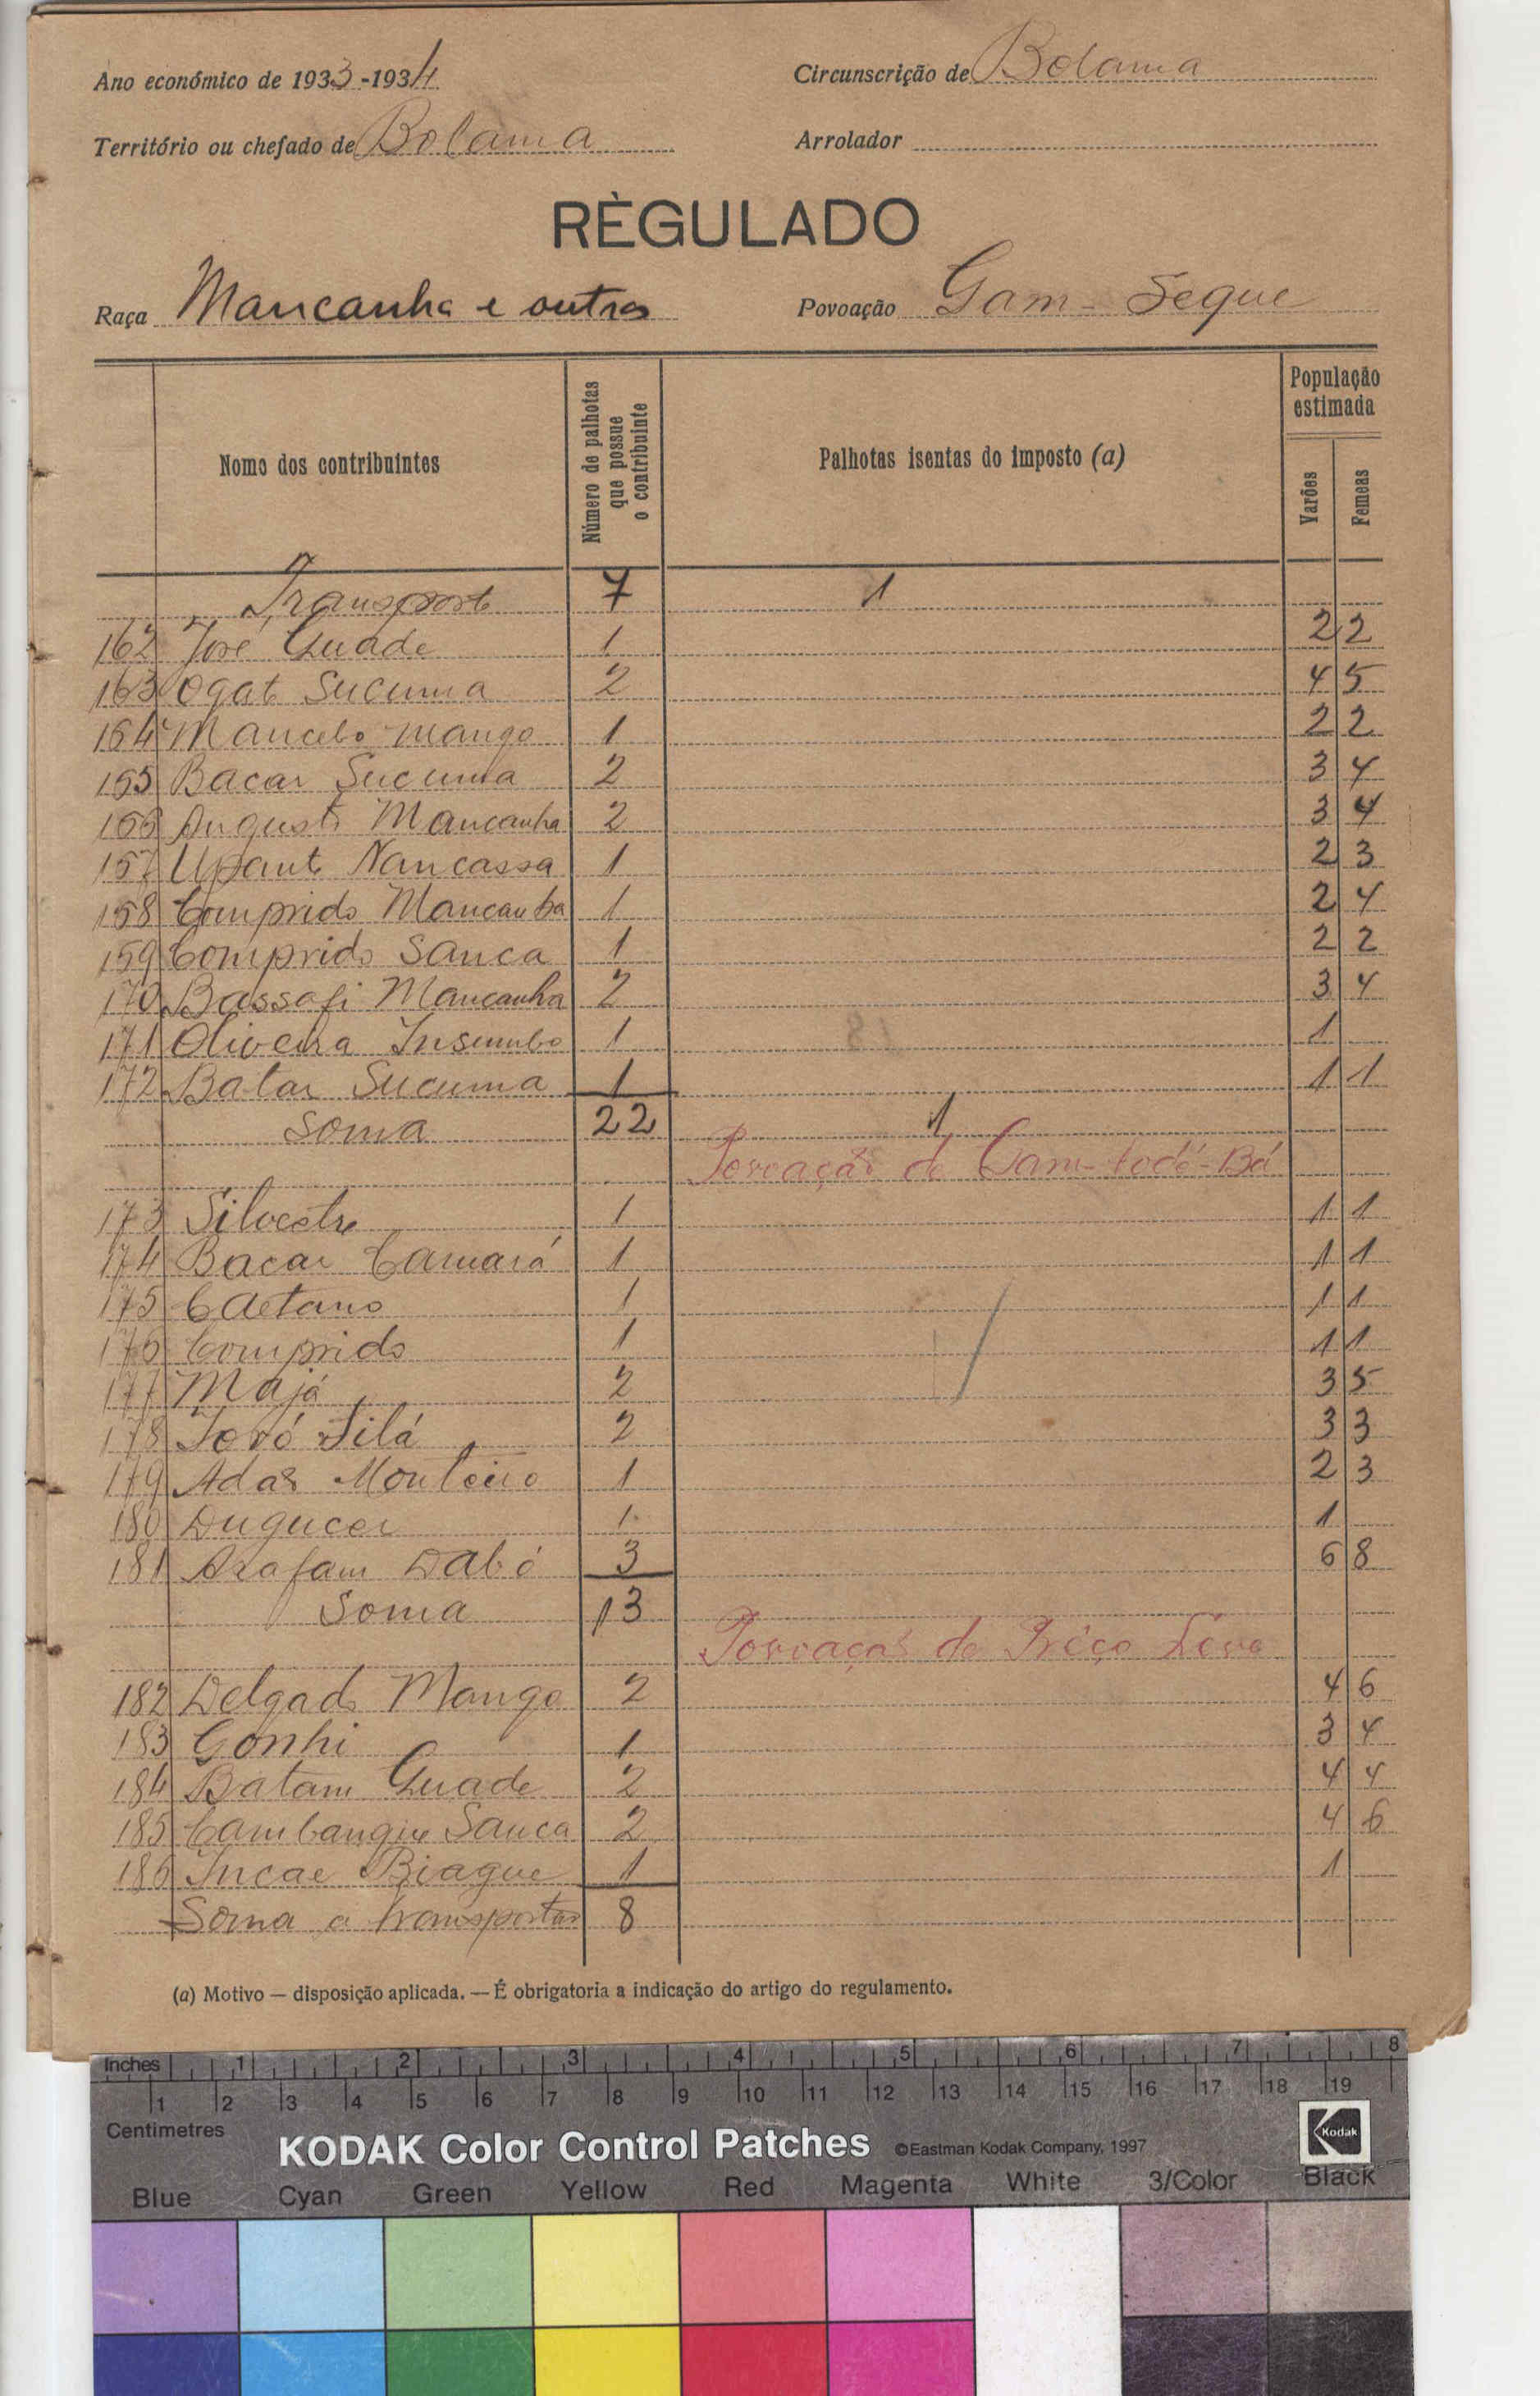 Ano económico de 1933-1934 Circunscrição de Bolama
Território ou chefado de Bolama Arrolador
RÈGULADO
Raça Mancanha e outros Povoação Gam-Seque
Nome dos contribuintes
Número de palhotas que possue o contribuinte
Palhotas isentas do imposto (a)
População estimada
Varões
Femeas
Transporte 7 1
162 José Guade 1 2 2
163 Ogat Sucuma 2 4 5
164 Mancebo Mango 1 2 2
165 Bacar Sucuma 2 3 4
166 Augusto Mancanha 2 3 4
167 Upante Nancassa 1 2 3
168 Comprido Mancanha 1 2 4
169 Comprido Sanca 1 2 2
170 Bassafi Mancanha 2 3 4
171 Oliveira Insumbo 1 1
172 Batar Sucuma 1 1 1
Soma 22 1
Povoação de Gam-todé-Bá
173 Silvestre 1 1 1
174 Bacar Camará 1 1 1
175 Caetano 1 1 1
176 Comprido 1 1 1
177 Majá 2 3 5
178 Jovó Silá 2 3 3
179 Adão Monteiro 1 2 3
180 1 1
181 Arafam Dabó 3 6 8
Soma 13
Povoação de
182 Delgado Mango 2 4 6
183 Gonhi 1 3 4
184 Batam Guade 2 4 4
185 Cambangue Sanca 2 4 6
186 Incae Biague 1 1
Soma a transportar 8
(a) Motivo — disposição aplicada. — É obrigatoria a indicação do artigo do regulamento.
Inches 1 2 3 4 5 6 7 8
1 2 3 4 5 6 7 8 9 10 11 12 13 14 15 16 17 18 19
Centimetres
KODAK Color Control Patches ©Eastman Kodak Company, 1997 Kodak
Blue Cyan Green Yellow Red Magenta White 3/Color Black